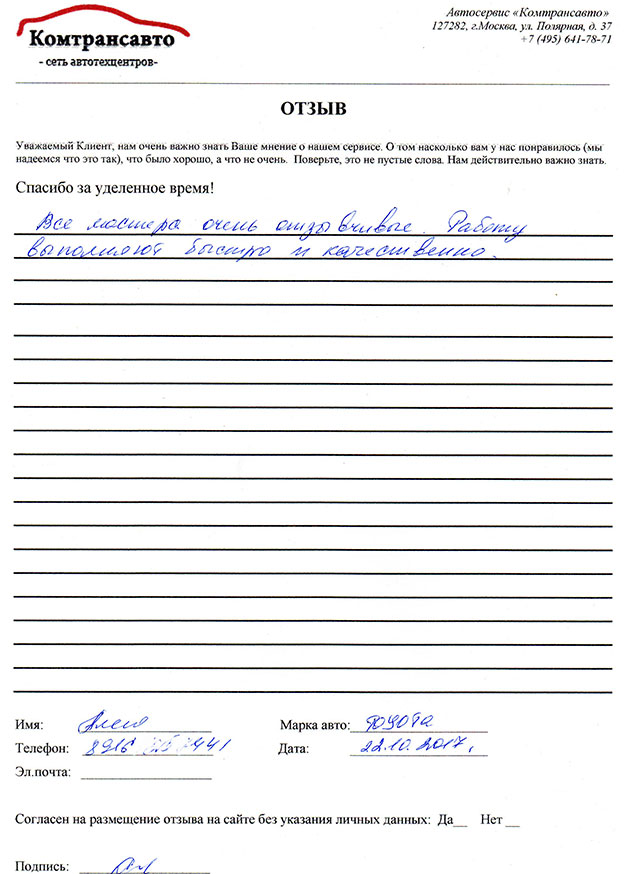 Комтрансавто
- сеть автотехцентров-
Автосервис «Комтрансавто»
127282, г.Москва, ул. Полярная, д. 37
+7 (495) 641-78-71
ОТЗЫВ
Уважаемый Клиент, нам очень важно знать Ваше мнение о нашем сервисе. О том насколько вам у нас понравилось (мы
надеемся что это так), что было хорошо, а что не очень. Поверьте, это не пустые слова. Нам действительно важно знать.
Спасибо за уделенное время!
Все мастера очень отзывчивые. Работу
выполняют быстро и качественно.
Имя:
Марка авто: Тойота
Телефон: 8916
Дата: 22.10.2017г.
Эл.почта:
Согласен на размещение отзыва на сайте без указания личных данных: Да__ Нет __
Подпись: